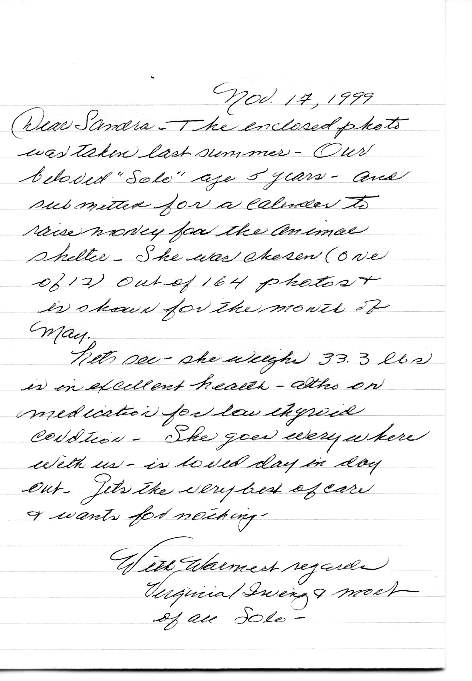 Nov. 17, 1999
Dear Sandra - The enclosed photo
was taken last summer - Our
beloved "Solo" age 5 years - and
submitted for a calender to
raise money for the animal
shelter - She was chosen (one
of 12) out of 164 photos +
is shown for the month of
May.
Lets see - she weighs 33.3 lbs
is in excellent health - altho on
medication for low thyroid
condition - She goes everywhere
with us - is loved day in day
out. Gets the very best of care
& wants for nothing -
With Warmest regards
Virginia Irwing & most
of all Solo -